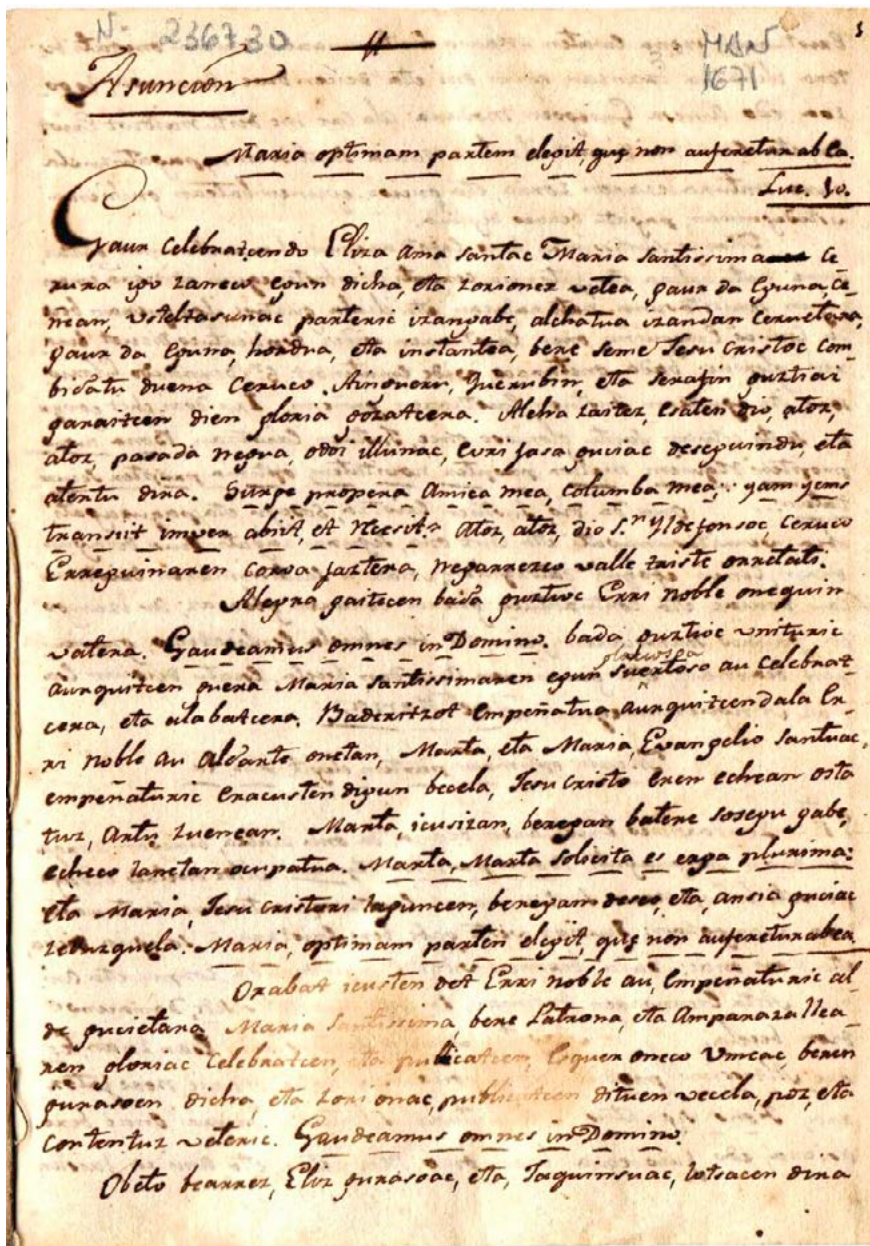 N 236730
MAN
1671
Asunción
Maria optimam partem elegit, quę non auferetur ab ea.
Luc. 10.
Gaur celebratcendo Eliza Ama santac Maria santissima Ce-
rura igo zaneco egun dicha, eta zorionez vetea, gaur da Eguna, ce-
ñean, vsteltasunac parteric izangabe, alchatua izandan Ceruetara,
gaur da Eguna, hordua, eta instantea, bere seme Jesu Cristoc com-
bidatu duena Ceruco Aingueru, Querubin, eta serafin guztiai
garaitcen dien gloria gozatcera. Alcha zaitez, esaten dio, ator,
ator, pasada negua, odoi illunac, euri jasa guciac deseguindu, eta
atertu dira. Surge propera Amica mea, columba mea, yam yems
transiit imver abiit, et recesit. Ator, ator, dio S.n Yldefonsoc, Ceruco
Erreguinaren Coroa jaztera, negarrezco valle triste orretati.
Alegra gaitecen bada guztioc Erri noble onequin
vatera. Gaudeamus omnes in Domino. bada guztioc vnituric
aurquitcen guera Maria santissimaren egun suertoso au celebrat-
gloriosa
cera, eta alabatcera. Baderitzot empeñatua aurquitcendala Er-
ri noble au Aldarte onetan, Marta, eta Maria, Evangelio santuac,
empeñaturic eracusten digun becela, Jesu Cristo eren echean osta
tuz, Artu zuenean. Marta, icusizan, beregan batere sosegu gabe,
echeco lanetan ocupatua. Marta, Marta solicita es erga plurima:
eta Maria, Jesu Cristori laguncen, beregan deseo, eta, ansia guciac
zetuzquela. Maria, optimam partem elegit, quę non auferetur abea.
Orabat icusten det Erri noble au, Empeñaturic al-
de gucietara Maria Santissima, bere Patrona, eta Amparazallea-
ren gloriac celebratcen, eta publicatcen, Esquer oneco Vmeac, beren
gurasoen dicha, eta zorionac, publicatcen dituen vecela, poz, eta
contentuz veteric. Gaudeamus omnes in Domino.
Obeto bearrez, Eliz gurasoac, eta, Jaquinsuac, lotsacen dira